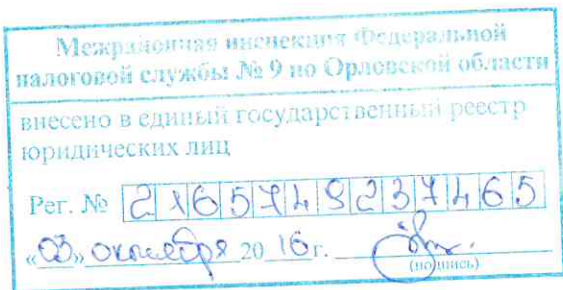 Межрайонная инспекция Федеральной
налоговой службы № 9 по Орловской области
внесено в единый государственный реестр
юридических лиц
Рег. № 2165749237465
«03» октября 2016 г.
(подпись)